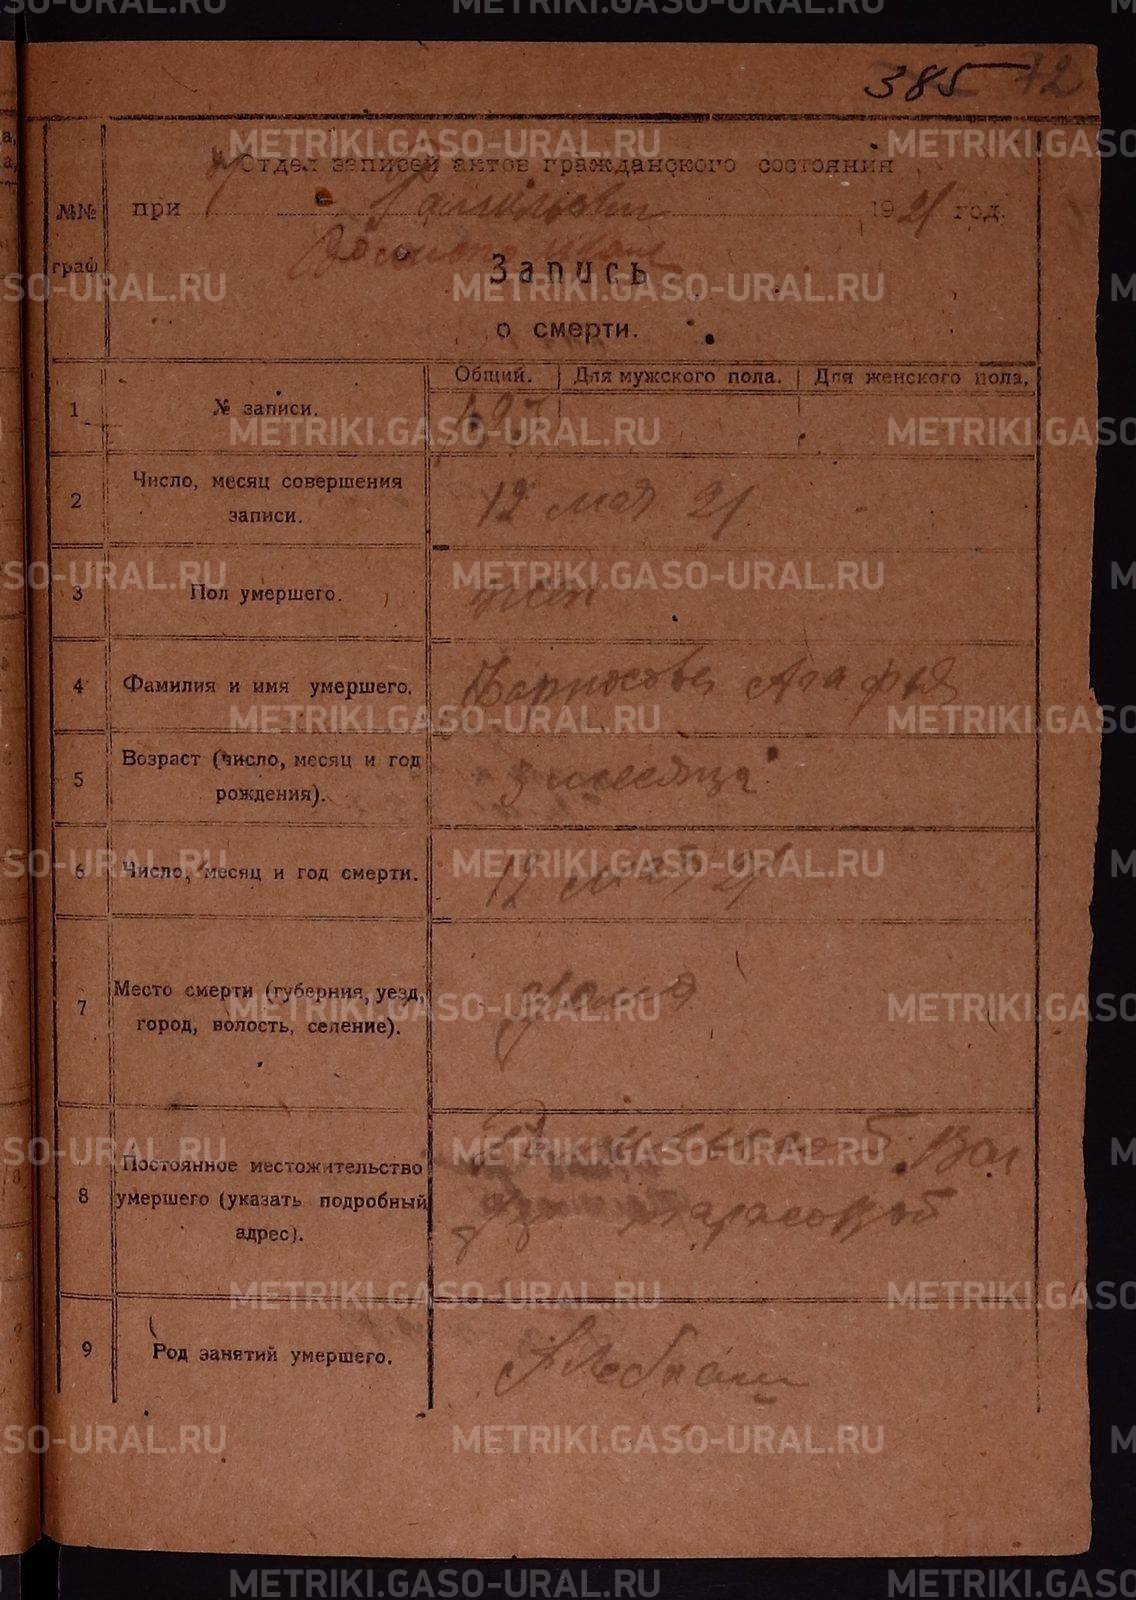 385 72
Отдел записей актов гражданского состояния
при 1921 год.
№№
граф
Запись
о смерти.
Общий. Для мужского пола. Для женского пола.
1 № записи.
2 Число, месяц совершения
записи.
12 мая 21
3 Пол умершего.
жен
4 Фамилия и имя умершего.
Агафья
5 Возраст (число, месяц и год
рождения).
3 месяца
6 Число, месяц и год смерти.
12 мая 21
7 Место смерти (губерния, уезд,
город, волость, селение).
дома
8 Постоянное местожительство
умершего (указать подробный
адрес).
Вол
Тарасовой
9 Род занятий умершего.
METRIKI.GASO-URAL.RU